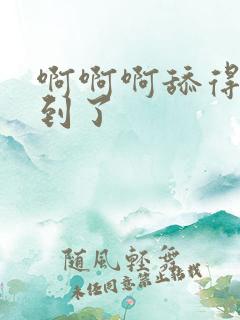 啊啊啊舔得
到了
随风轻舞
未经同意禁止转载